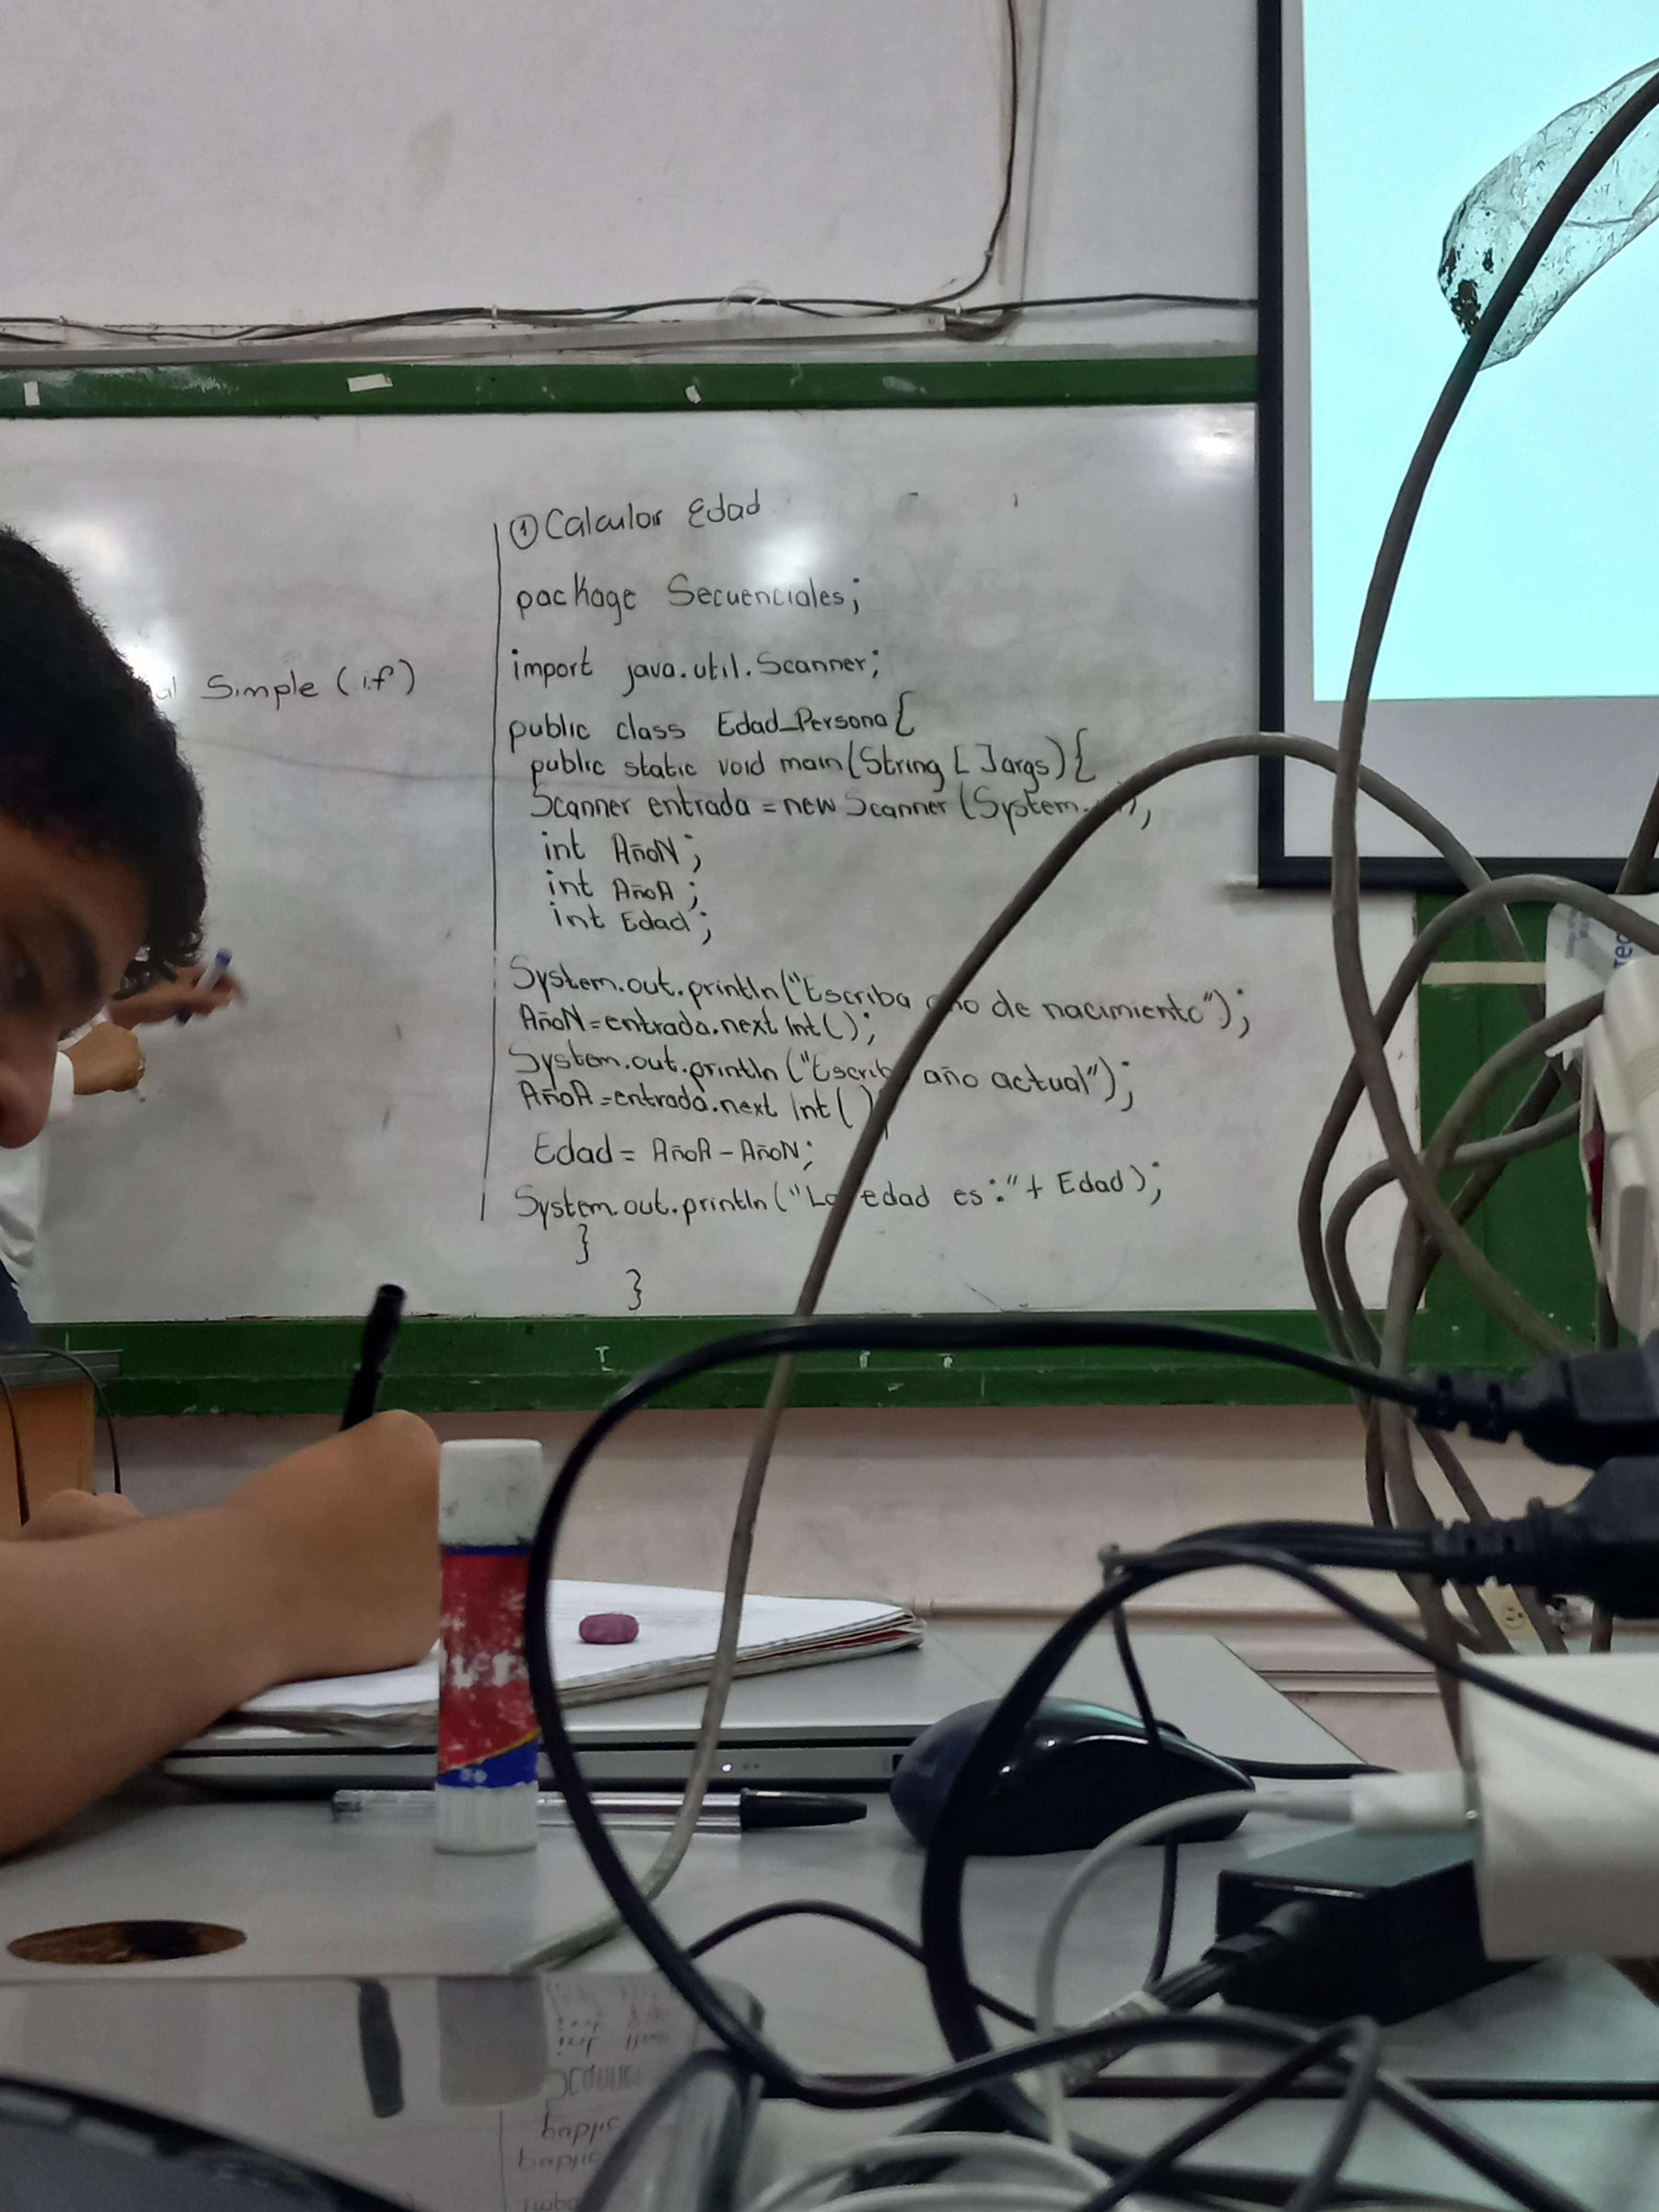 Simple (if)
① Calcular Edad
package Secuenciales;
import java.util.Scanner;
public class Edad_Persona{
public static void main(String [ ]args){
Scanner entrada = new Scanner (System.
int AñoN;
int AñoA;
int Edad;
System.out.println("Escriba de nacimiento");
AñoN=entrada.next Int();
System.out.println ("Escriba año actual");
AñoA=entrada.next Int( )
Edad = AñoA - AñoN;
System.out.println ("La edad es:"+ Edad);
}
}